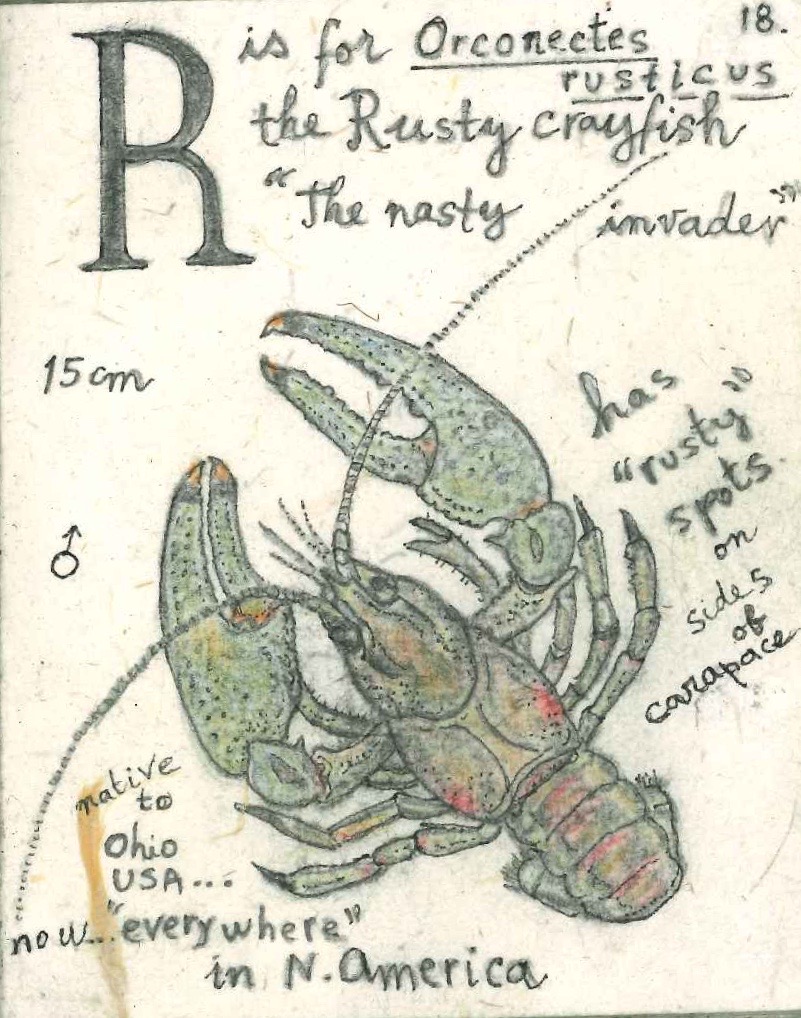 18.
R is for Orconectes
rusticus
the Rusty crayfish
"The nasty invader"
15cm
♂
has
"rusty"
spots
on
sides
of
carapace
native
to
Ohio
USA...
now..."everywhere"
in N. America